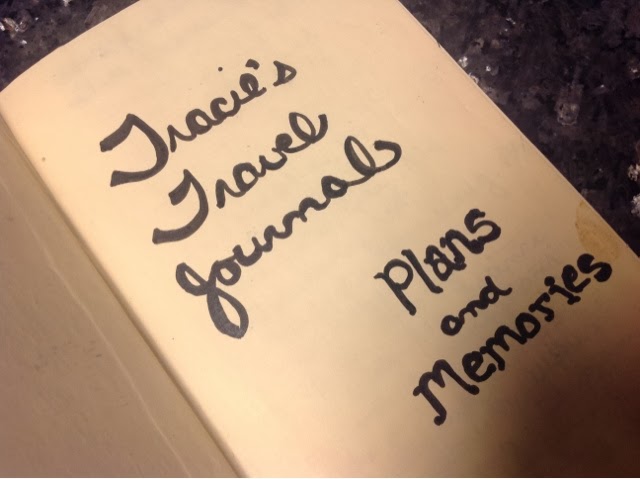 Tracie's
Travel
Journal
Plans
and
Memories